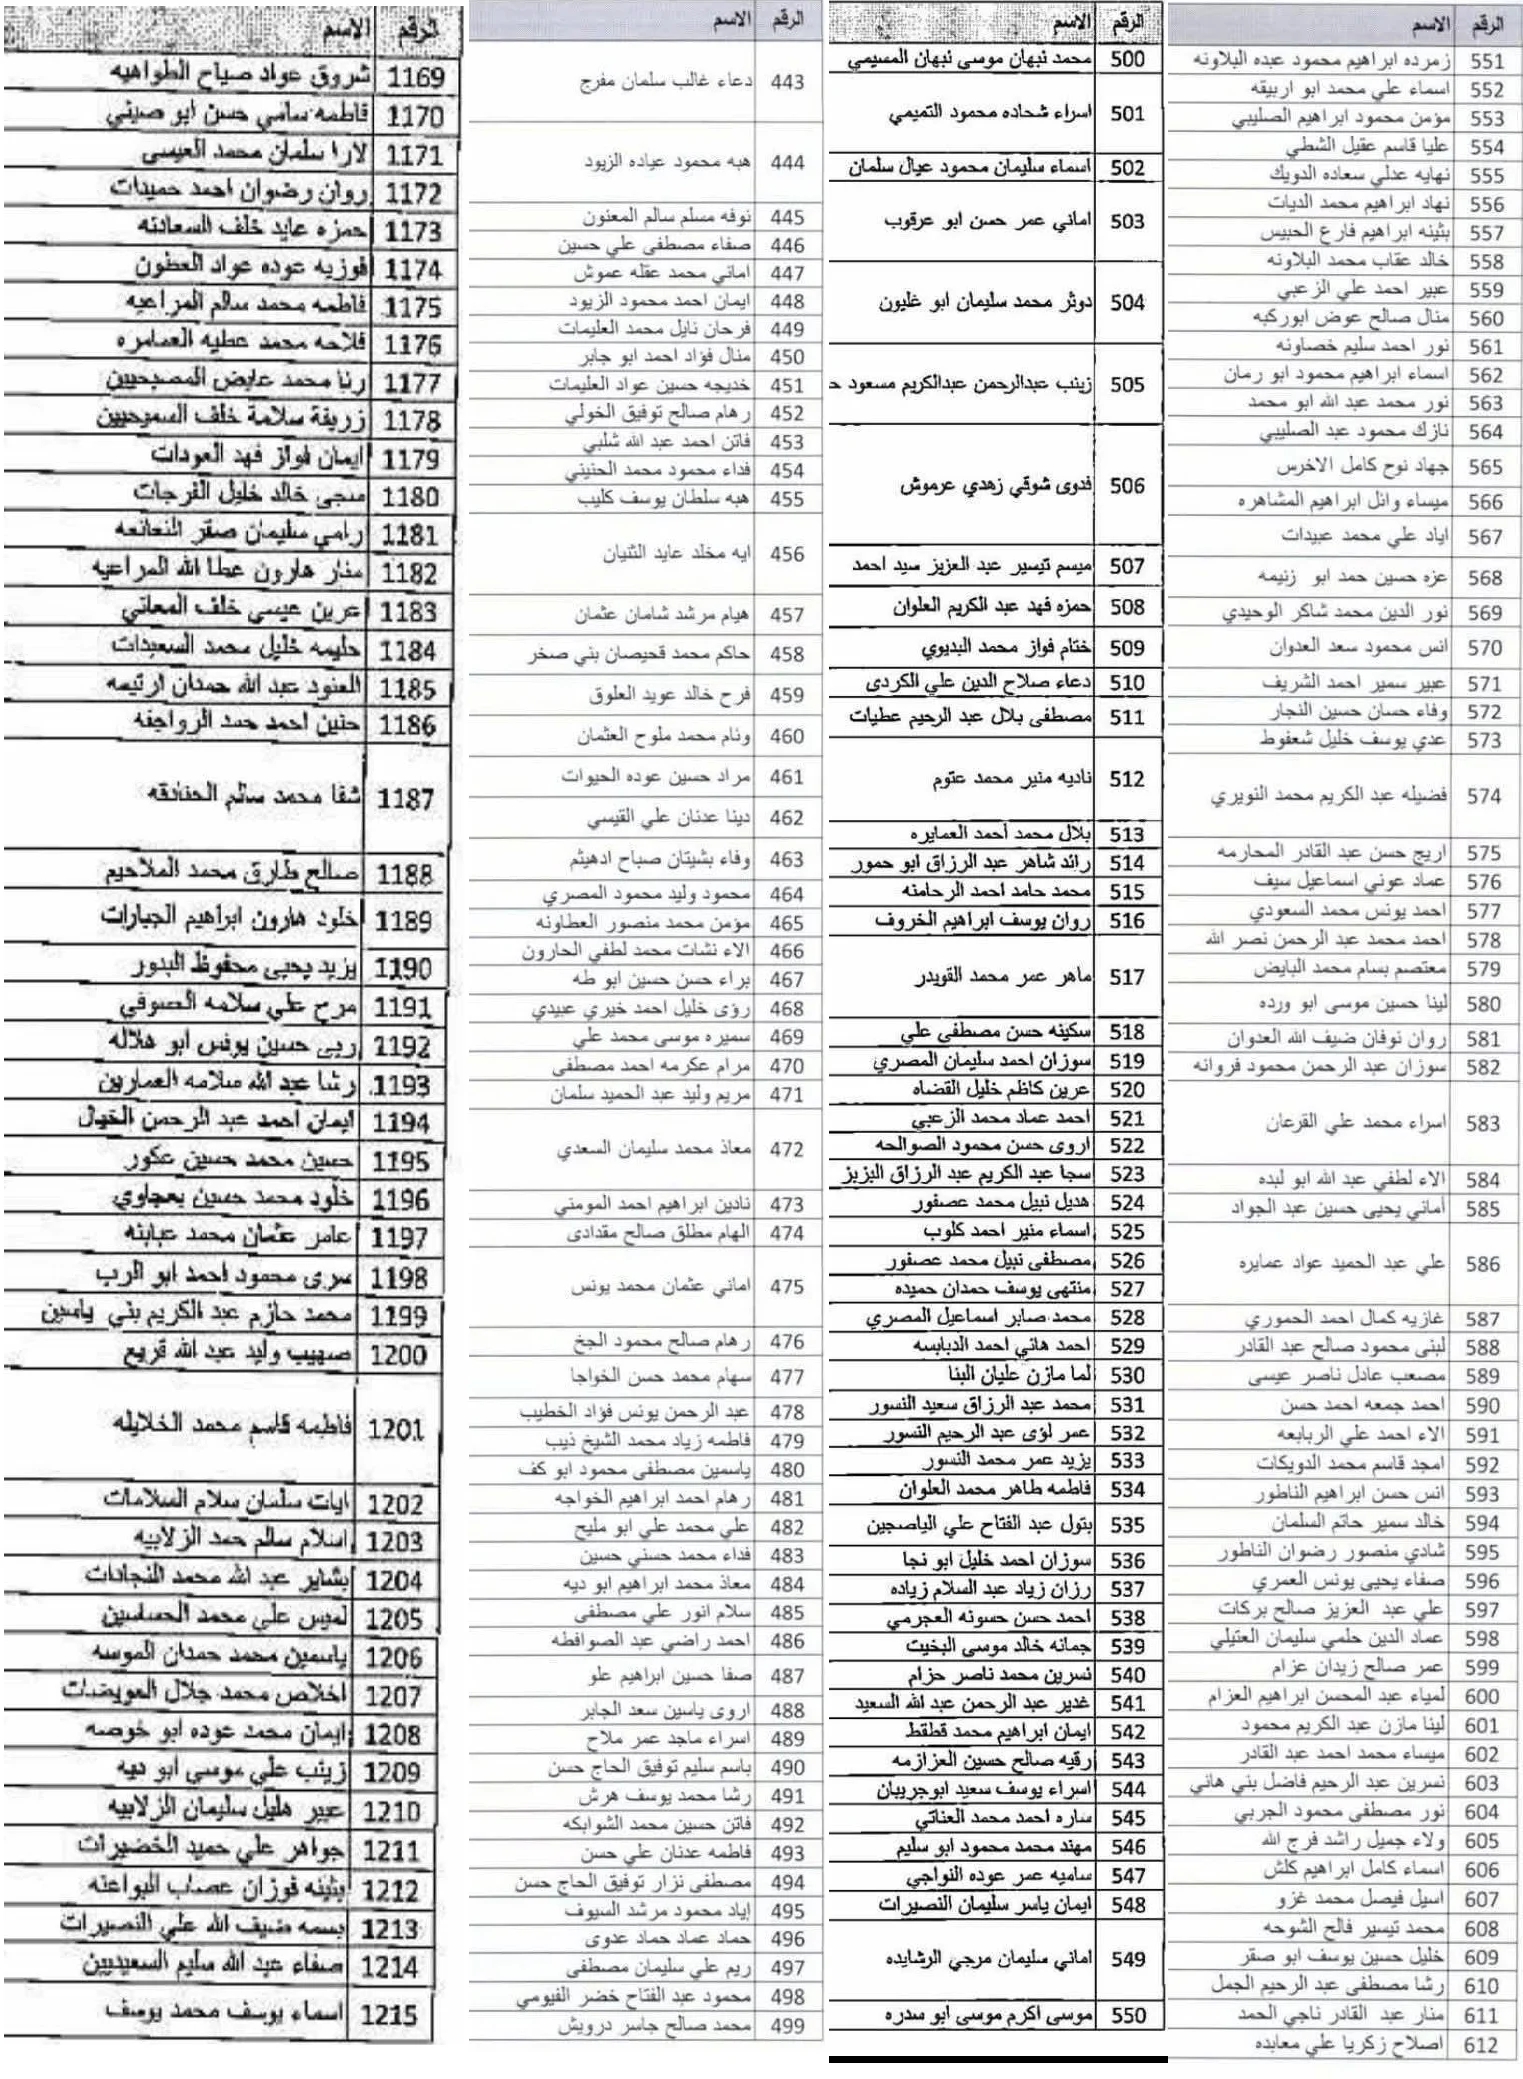 الرقم الاسم
551 زمرده ابراهيم محمود عبده البلاونه
552 اسماء علي محمد ابو اربيقه
553 مؤمن محمود ابراهيم الصليبي
554 عليا قاسم عقيل الشطي
555 نهايه عدلي سعاده الدويك
556 نهاد ابراهيم محمد الديات
557 بثينه ابراهيم فارع الحبيس
558 خالد عقاب محمد البلاونه
559 عبير احمد علي الزعبي
560 منال صالح عوض ابوركبه
561 نور احمد سليم خصاونه
562 اسماء ابراهيم محمود ابو رمان
563 نور محمد عبد الله ابو محمد
564 نازك محمود عبد الصليبي
565 جهاد نوح كامل الاخرس
566 ميساء وائل ابراهيم المشاهره
567 اياد علي محمد عبيدات
568 عزه حسين حمد ابو زنيمه
569 نور الدين محمد شاكر الوحيدي
570 انس محمود سعد العدوان
571 عبير سمير احمد الشريف
572 وفاء حسان حسين النجار
573 عدي يوسف خليل شعفوط
574 فضيله عبد الكريم محمد النويري
575 اريج حسن عبد القادر المحارمه
576 عماد عوني اسماعيل سيف
577 احمد يونس محمد السعودي
578 احمد محمد عبد الرحمن نصر الله
579 معتصم بسام محمد البايض
580 لينا حسين موسى ابو ورده
581 روان نوفان ضيف الله العدوان
582 سوزان عبد الرحمن محمود فروانه
583 اسراء محمد علي القرعان
584 الاء لطفي عبد الله ابو لبده
585 أماني يحيى حسين عبد الجواد
586 علي عبد الحميد عواد عمايره
587 غازيه كمال احمد الحموري
588 لبنى محمود صالح عبد القادر
589 مصعب عادل ناصر عيسى
590 احمد جمعه احمد حسن
591 الاء احمد علي الربابعه
592 امجد قاسم محمد الدويكات
593 انس حسن ابراهيم الناطور
594 خالد سمير حاتم السلمان
595 شادي منصور رضوان الناطور
596 صفاء يحيى يونس العمري
597 علي عبد العزيز صالح بركات
598 عماد الدين حلمي سليمان العتيلي
599 عمر صالح زيدان عزام
600 لمياء عبد المحسن ابراهيم العزام
601 لينا مازن عبد الكريم محمود
602 ميساء محمد احمد عبد القادر
603 نسرين عبد الرحيم فاضل بني هاني
604 نور مصطفى محمود الجربي
605 ولاء جميل راشد فرج الله
606 اسماء كامل ابراهيم كلش
607 اسيل فيصل محمد غزو
608 محمد تيسير فالح الشوحه
609 خليل حسين يوسف ابو صقر
610 رشا مصطفى عبد الرحيم الجمل
611 منار عبد القادر ناجي الحمد
612 اصلاح زكريا علي معابده
الرقم الاسم
500 محمد نبهان موسى نبهان المسيمي
501 اسراء شحاده محمود التميمي
502 اسماء سليمان محمود عيال سلمان
503 اماني عمر حسن ابو عرقوب
504 دوثر محمد سليمان ابو غليون
505 زينب عبدالرحمن عبدالكريم مسعود ح
506 فدوى شوقي زهدي عرموش
507 ميسم تيسير عبد العزيز سيد احمد
508 حمزه فهد عبد الكريم العلوان
509 ختام فواز محمد البديوي
510 دعاء صلاح الدين علي الكردى
511 مصطفى بلال عبد الرحيم عطيات
512 ناديه منير محمد عتوم
513 بلال محمد احمد العمايره
514 رائد شاهر عبد الرزاق ابو حمور
515 محمد حامد احمد الرحامنه
516 روان يوسف ابراهيم الخروف
517 ماهر عمر محمد القويدر
518 سكينه حسن مصطفى علي
519 سوزان احمد سليمان المصري
520 عرين كاظم خليل القضاه
521 احمد عماد محمد الزعبي
522 اروى حسن محمود الصوالحه
523 سجا عبد الكريم عبد الرزاق البزبز
524 هديل نبيل محمد عصفور
525 اسماء منير احمد كلوب
526 مصطفى نبيل محمد عصفور
527 منتهى يوسف حمدان حميده
528 محمد صابر اسماعيل المصري
529 احمد هاني احمد الدبابسه
530 لما مازن عليان البنا
531 محمد عبد الرزاق سعيد النسور
532 عمر لؤى عبد الرحيم النسور
533 يزيد عمر محمد النسور
534 فاطمه طاهر محمد العلوان
535 بتول عبد الفتاح علي الياصجين
536 سوزان احمد خليل ابو نجا
537 رزان زياد عبد السلام زياده
538 احمد حسن حسونه العجرمي
539 جمانه خالد موسى البخيت
540 نسرين محمد ناصر حزام
541 غدير عبد الرحمن عبد الله السعيد
542 ايمان ابراهيم محمد قطقط
543 رقيه صالح حسين العزازمه
544 اسراء يوسف سعيد ابوجريبان
545 ساره احمد محمد العناتي
546 مهند محمد محمود ابو سليم
547 ساميه عمر عوده النواجي
548 ايمان ياسر سليمان النصيرات
549 اماني سليمان مرجي الرشايده
550 موسى اكرم موسى ابو سدره
الرقم الاسم
443 دعاء غالب سلمان مفرج
444 هبه محمود عياده الزيود
445 نوفه مسلم سالم المعنون
446 صفاء مصطفى علي حسين
447 اماني محمد عقله عموش
448 ايمان احمد محمود الزيود
449 فرحان نايل محمد العليمات
450 منال فؤاد احمد ابو جابر
451 خديجه حسين عواد العليمات
452 رهام صالح توفيق الخولي
453 فاتن احمد عبد الله شلبي
454 فداء محمود محمد الحنيني
455 هبه سلطان يوسف كليب
456 ايه مخلد عايد الثنيان
457 هيام مرشد شامان عثمان
458 حاكم محمد قحيصان بني صخر
459 فرح خالد عويد العلوق
460 ونام محمد ملوح العثمان
461 مراد حسين عوده الحيوات
462 دينا عدنان علي القيسي
463 وفاء بشيتان صباح ادهيثم
464 محمود وليد محمود المصري
465 مؤمن محمد منصور العطاونه
466 الاء نشات محمد لطفي الحارون
467 براء حسن حسين ابو طه
468 رؤى خليل احمد خيري عبيدي
469 سميره موسى محمد علي
470 مرام عكرمه احمد مصطفى
471 مريم وليد عبد الحميد سلمان
472 معاذ محمد سليمان السعدي
473 نادين ابراهيم احمد المومني
474 الهام مطلق صالح مقدادى
475 اماني عثمان محمد يونس
476 رهام صالح محمود الجخ
477 سهام محمد حسن الخواجا
478 عبد الرحمن يونس فؤاد الخطيب
479 فاطمه زياد محمد الشيخ ذيب
480 ياسمين مصطفى محمود ابو كف
481 رهام احمد ابراهيم الخواجه
482 علي محمد علي ابو مليح
483 فداء محمد حسني حسين
484 معاذ محمد ابراهيم ابو ديه
485 سلام انور علي مصطفى
486 احمد راضي عبد الصوافطه
487 صفا حسين ابراهيم علو
488 اروى ياسين سعد الجابر
489 اسراء ماجد عمر ملاح
490 باسم سليم توفيق الحاج حسن
491 رشا محمد يوسف هرش
492 فاتن حسين محمد الشوابكه
493 فاطمه عدنان علي حسن
494 مصطفى نزار توفيق الحاج حسن
495 إياد محمود مرشد السيوف
496 حماد عماد حماد عدوى
497 ريم علي سليمان مصطفى
498 محمود عبد الفتاح خضر الفيومي
499 محمد صالح جاسر درويش
الرقم الاسم
1169 شروق عواد صياح الطواهيه
1170 فاطمه سامي حسن ابو صيني
1171 لارا سلمان محمد العيسى
1172 روان رضوان احمد حميدات
1173 حمزه عايد خلف السعادنه
1174 فوزيه عوده عواد العطون
1175 فاطمه محمد سالم المراعيه
1176 فلاحه محمد عطيه العمامره
1177 رنا محمد عايض المصبحيين
1178 زريفة سلامة خلف السميحيين
1179 ايمان فواز فهد العودات
1180 منجى خالد خليل الفرجات
1181 رامي سليمان صقر النعانعه
1182 منار هارون عطا الله المراعيه
1183 عرين عيسى خلف المعاني
1184 حليمه خليل محمد السعيدات
1185 العنود عبد الله حمدان ارتيمه
1186 حنين احمد حمد الرواجفه
1187 شفا محمد سالم الحنادقه
1188 صالح طارق محمد الملاحيم
1189 خلود هارون ابراهيم الجبارات
1190 يزيد يحيى محفوظ البدور
1191 مرح علي سلامه الصوفي
1192 ربى حسين يونس ابو هلاله
1193 رشا عبد الله سلامه العمارين
1194 ايمان احمد عبد الرحمن الخيال
1195 حسين محمد حسين عكور
1196 خلود محمد حسين بعجاوي
1197 عامر عثمان محمد عبابنه
1198 سرى محمود احمد ابو الرب
1199 محمد حازم عبد الكريم بني ياسين
1200 صهيب وليد عبد الله قريع
1201 فاطمه قاسم محمد الخلايله
1202 ايات سلمان سلام السلامات
1203 اسلام سالم حمد الزلابيه
1204 بشاير عبد الله محمد النجادات
1205 لميس علي محمد الحساسين
1206 ياسمين محمد حمدان الموسه
1207 اخلاص محمد جلال العويضات
1208 ايمان محمد عوده ابو خوصه
1209 زينب علي موسى ابو ديه
1210 عبير هليل سليمان الزلابيه
1211 جواهر علي حميد الخضيرات
1212 بثينه فوزان عصاب البواعنه
1213 بسمه ضيف الله علي النصيرات
1214 صفاء عبد الله سليم السعيديين
1215 اسماء يوسف محمد يوسف